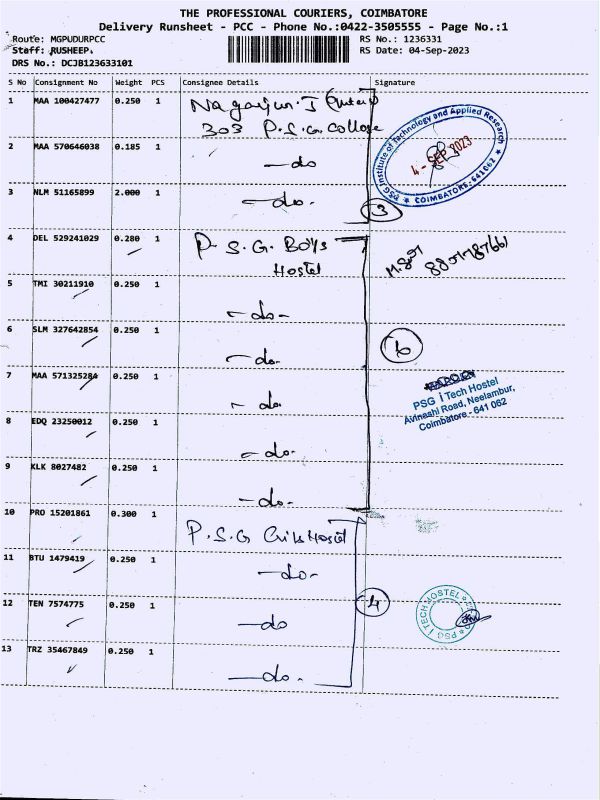 THE PROFESSIONAL COURIERS, COIMBATORE
Delivery Runsheet - PCC - Phone No.:0422-3505555 - Page No.:1
Route: MGPUDURPCC
RS No.: 1236331
Staff: RUSHEEP.
RS Date: 04-Sep-2023
DRS No.: DCJB123633101
S No Consignment No Weight PCS Consignee Details Signature
1 MAA 100427477 0.250 1 Nagarjun. I
303 P.S.G. College
PSG Institute of Technology and Applied Research
4 - SEP 2023
★ COIMBATORE-641 062 ★
2 MAA 570646038 0.185 1 -do
3 NLM 51165899 2.000 1 -do.
3
4 DEL 529241029 0.280 1 P.S.G. Boys
Hostel
5 TMI 30211910 0.250 1 -do-
6 SLM 327642854 0.250 1 -do.
6
7 MAA 571325284 0.250 1 - do.
PSG iTech Hostel
Avinashi Road, Neelambur,
Coimbatore - 641 062
8 EDQ 23250012 0.250 1 -do.
9 KLK 8027482 0.250 1 -do.
10 PRO 15201861 0.300 1 P.S.G Girls Hostel
11 BTU 1479419 0.250 1 -do-
12 TEN 7574775 0.250 1 -do
4
PSG iTECH HOSTEL
13 TRZ 35467849 0.250 1 -do.